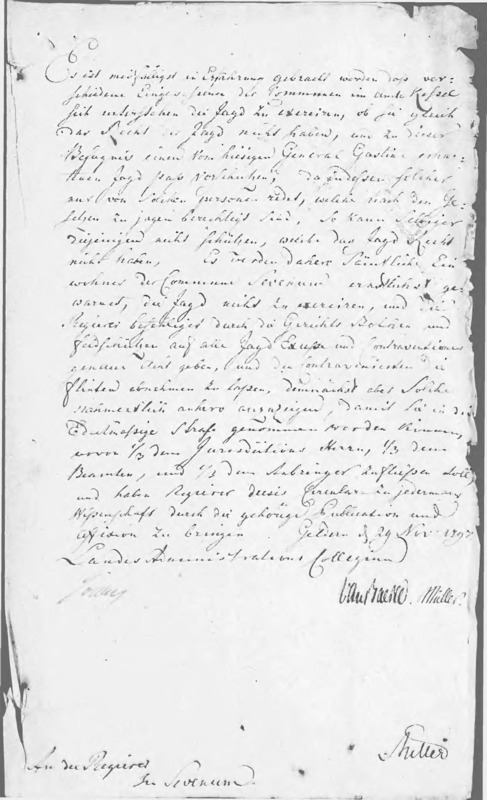 Es ist mißfälligst in Erfahrung gebracht worden daß ver-
schiedene Eingesessene der Commünen im amte Kessel
sich unterstehen die Jagd zu exerciren, ob sie gleich
das Recht der Jagd nicht haben, und zu dieser
Befugnis einen vom hiesigen General
Jagd paß vorschützen; da indessen solcher
nur von solchen personen redet, welche nach den Ge-
setzen zu jagen berechtigt sind, so kann selbiger
diejenigen nicht schützen, welche das Jagd Recht
nicht haben, Es werden dahero Sämtliche Ein
wohner der Commune Sevenum ernstlichst ge-
warnet, die Jagd nicht zu exerciren, und die
Regierer befehliget durch die Gerichts Bothen und
auf alle Jagd Excesse und Contraventiones
genaue Acht geben, und den Contravenienten die
Flinten abnehmen zu laßen, demnächst aber Solche
nahmentlich anhero anzuzeigen, damit Sie in die
Edictmässige Strafe genommen werden können,
wovon 1/3 dem Jurisdictions Herrn, 1/3 dem
Beamten, und 1/3 dem Anbringer zufließen soll
und haben Regierer dieses Circulare zu jedermans
Wissenschaft durch die gehörige Publication und
affixion zu bringen. Geldern d 29 Nov. 1793
Landes Administrations Collegium
Müller.
Müller
An die Regierer
Zu Sevenum.